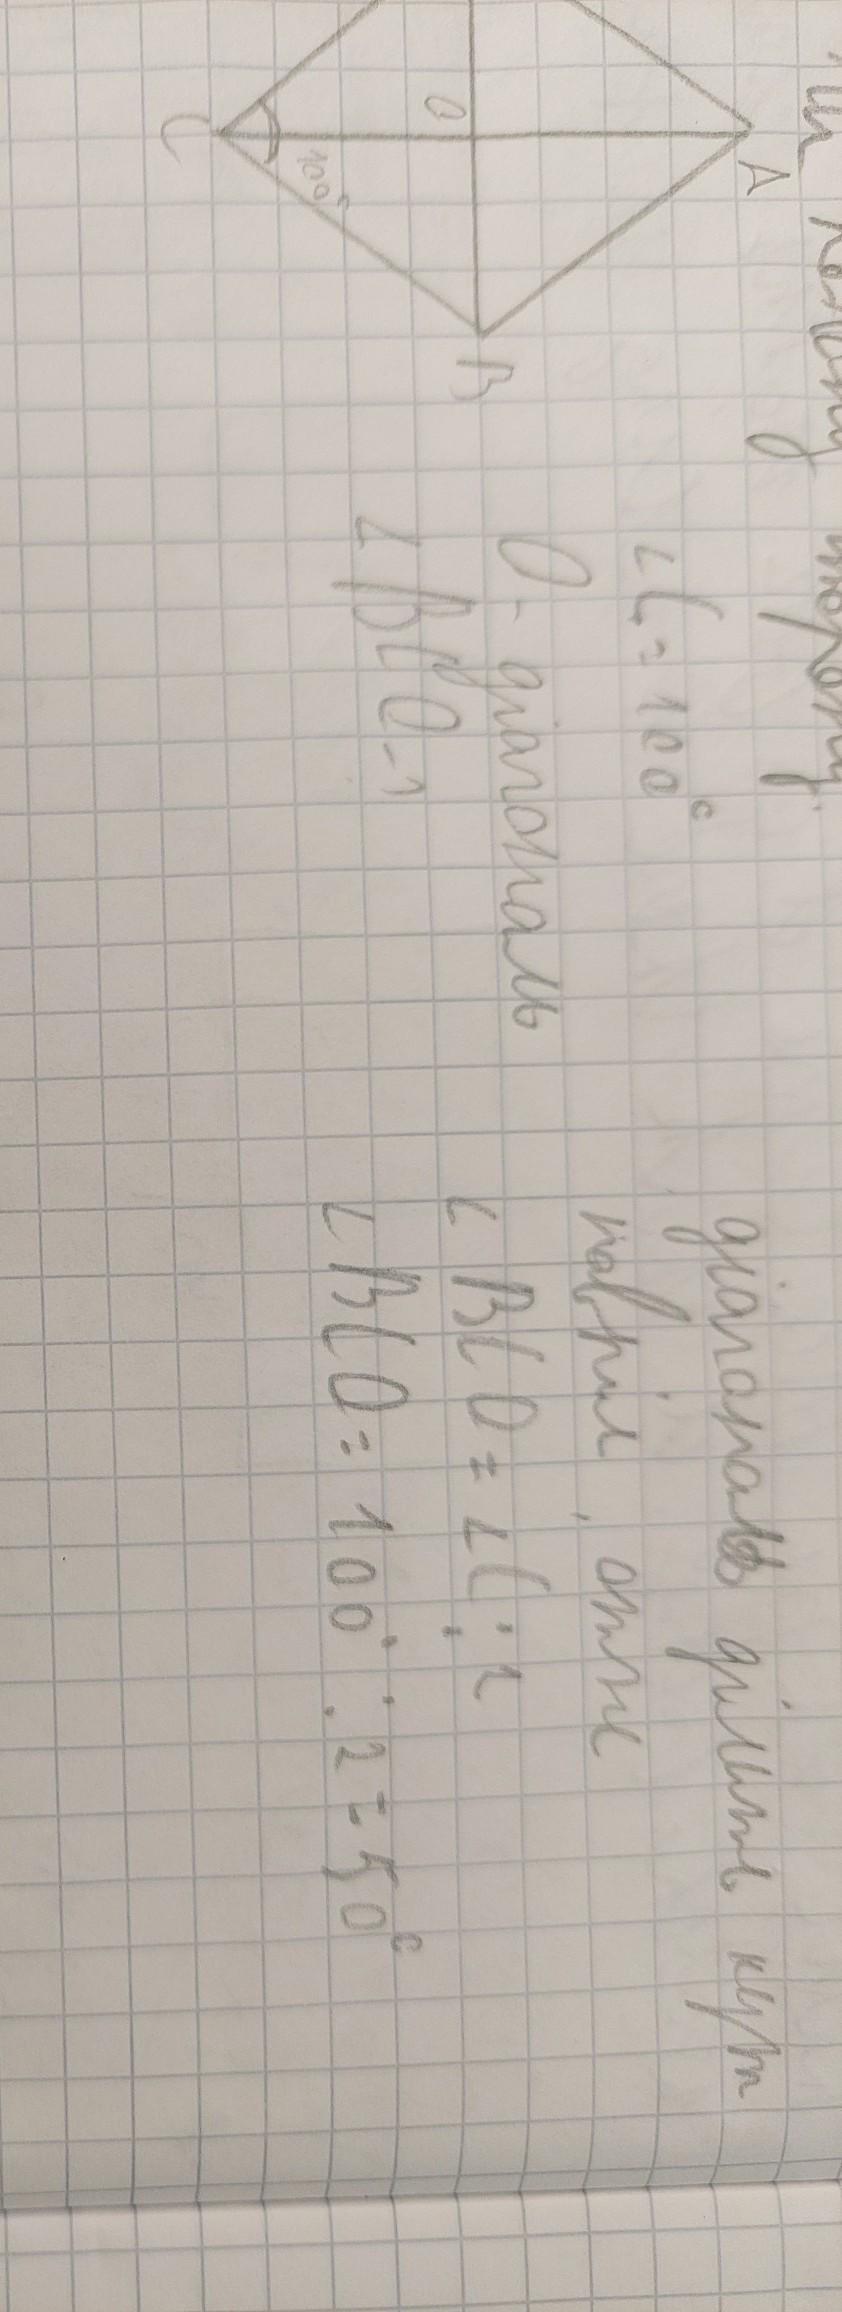 кожну сторону.
A
B
C
O
100°
∠C = 100°
O - діагональ
∠BCO - ?
діагональ ділить кут
навпіл, отже
∠BCO = ∠C : 2
∠BCO = 100° : 2 = 50°